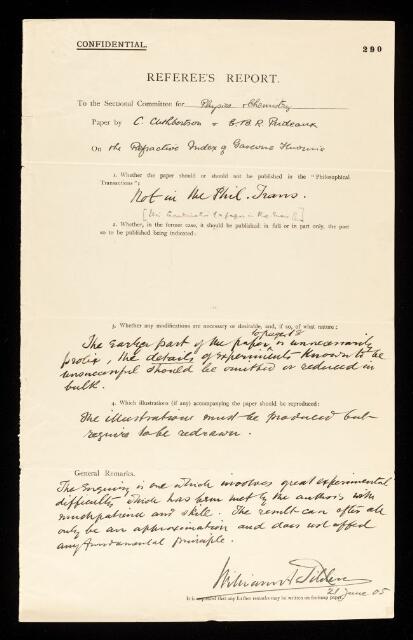 CONFIDENTIAL.
290
REFEREE'S REPORT.
To the Sectional Committee for Physics & Chemistry
Paper by C. Cuthbertson & E.B.R. Prideaux
On the Refractive Index of Gaseous Fluorine
1. Whether the paper should or should not be published in the "Philosophical
Transactions":
Not in the Phil. Trans.
2. Whether, in the former case, it should be published in full or in part only, the part
so to be published being indicated:
3. Whether any modifications are necessary or desirable, and, if so, of what nature:
to page 18
The earlier part of the paper is unnecessarily
prolix, the details of experiments known to be
unsuccessful should be omitted or reduced in
bulk.
4. Which illustrations (if any) accompanying the paper should be reproduced:
The illustrations must be produced but
require to be redrawn.
General Remarks.
The enquiry is one which involves great experimental
difficulty which has been met by the authors with
much patience and skill. The result can after all
only be an approximation and does not affect
any fundamental principle.
William A. Tilden
21 June 05
It is requested that any further remarks may be written on foolscap paper.